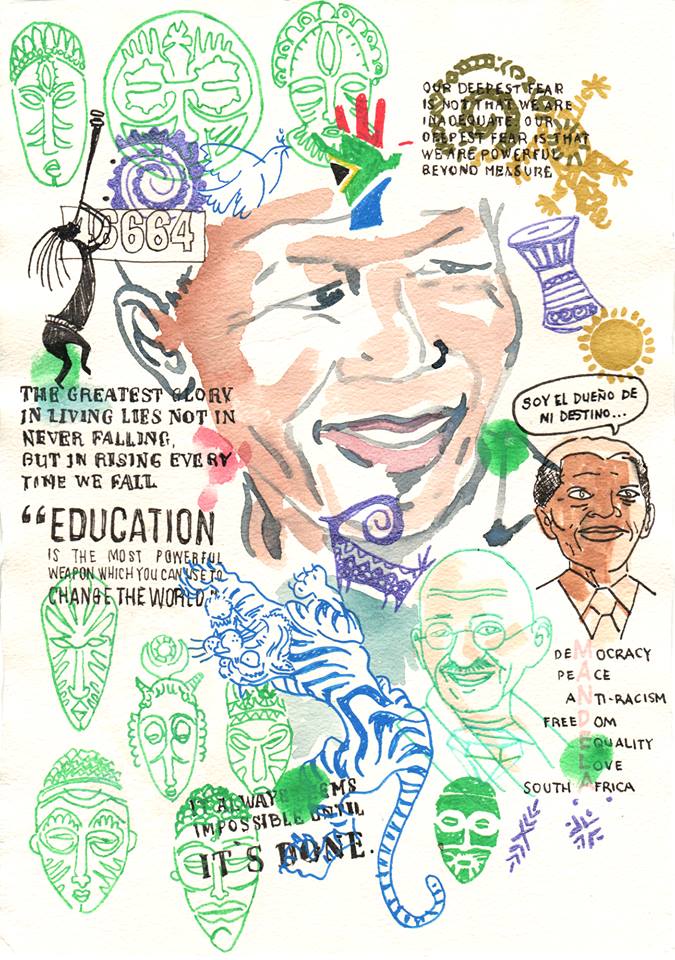 OUR DEEPEST FEAR
IS NOT THAT WE ARE
INADEQUATE. OUR
DEEPEST FEAR IS THAT
WE ARE POWERFUL
BEYOND MEASURE
46664
THE GREATEST GLORY
IN LIVING LIES NOT IN
NEVER FALLING,
BUT IN RISING EVERY
TIME WE FALL
SOY EL DUEÑO DE
MI DESTINO...
“EDUCATION
IS THE MOST POWERFUL
WEAPON WHICH YOU CAN USE TO
CHANGE THE WORLD.”
DEMOCRACY
PEACE
ANTI-RACISM
FREEDOM
EQUALITY
LOVE
SOUTH AFRICA
IT ALWAYS SEEMS
IMPOSSIBLE UNTIL
IT'S DONE.